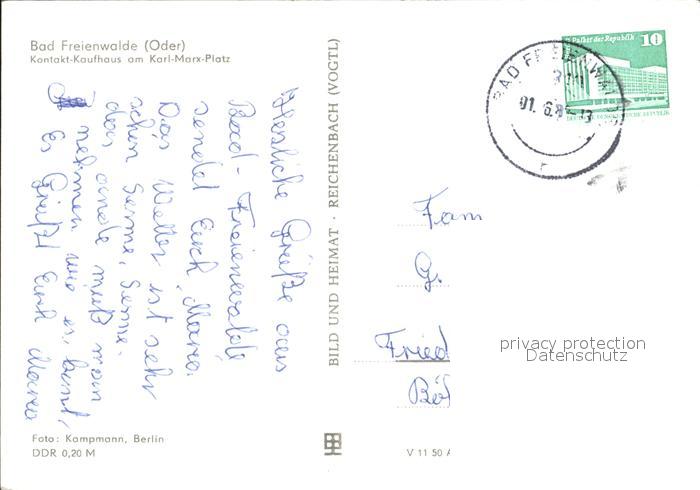 Bad Freienwalde (Oder)
Kontakt-Kaufhaus am Karl-Marx-Platz
Herzliche Grüße aus
Bad-Freienwalde
sendet Euch Maria.
Das Wetter ist sehr
schön Sonne, Sonne.
das andre muß man
nehmen wie es kommt,
Es Grüßt Euch Maria
Foto: Kampmann, Berlin
DDR 0,20 M
BILD UND HEIMAT · REICHENBACH (VOGTL)
V 11 50
Palast der Republik 10
DEUTSCHE DEMOKRATISCHE REPUBLIK
BAD FREIENWALDE
01. 6. -13
Fam
G.
Fried
privacy protection
Datenschutz